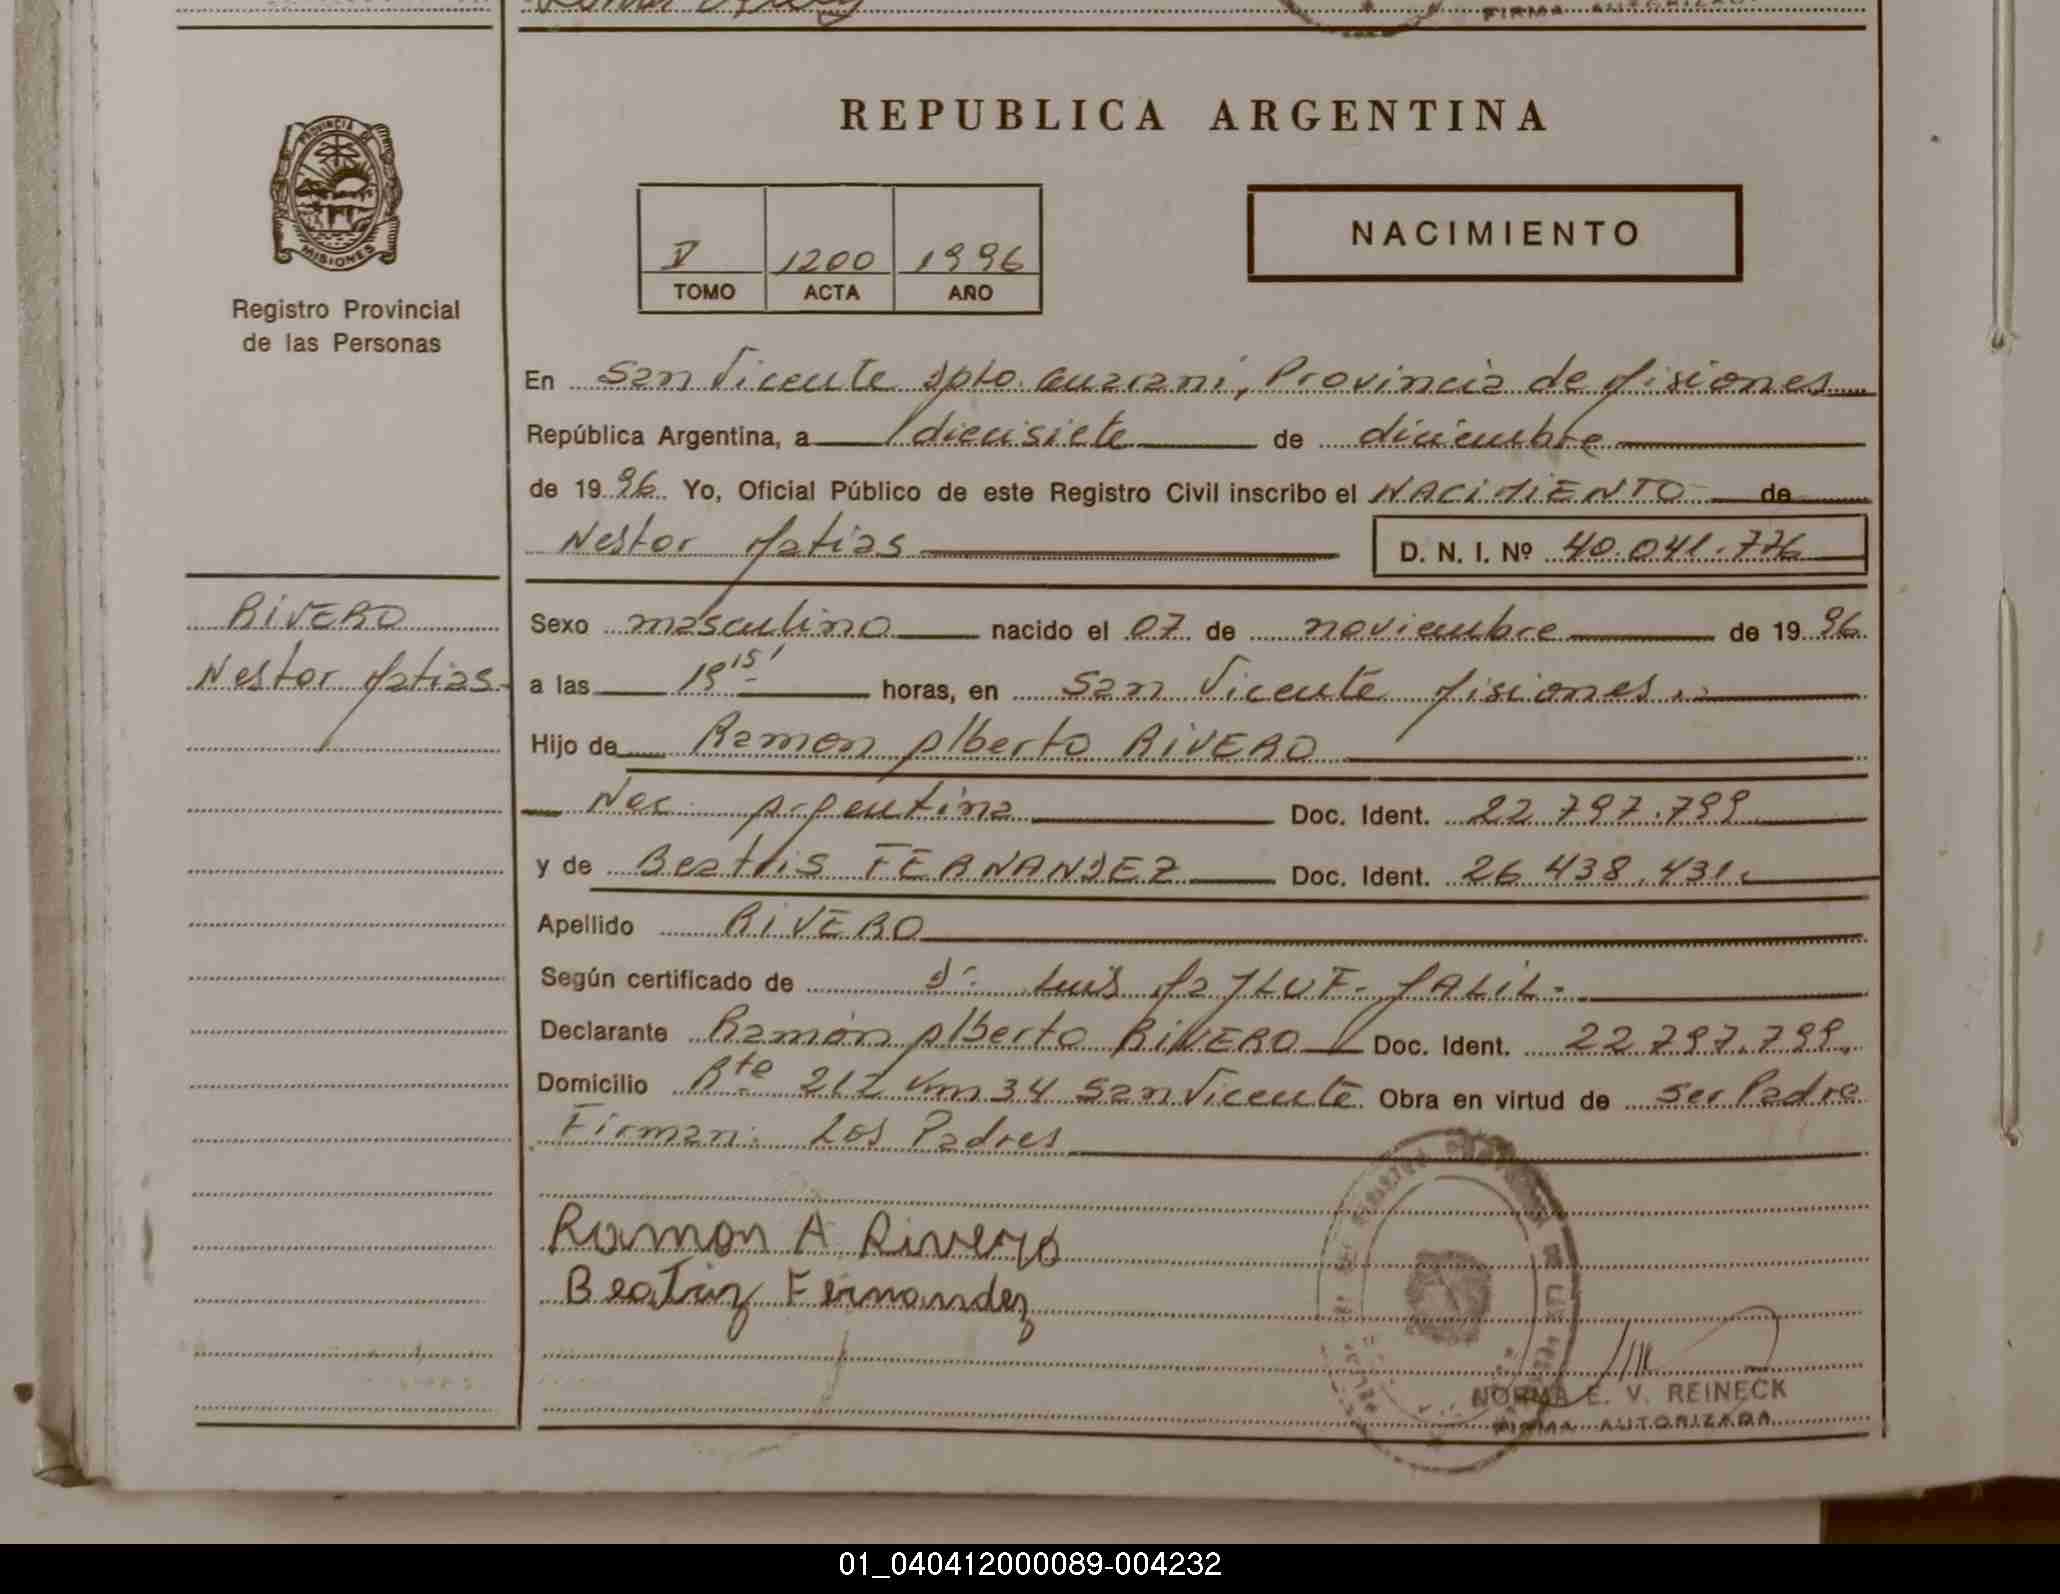 FIRMA AUTORIZADA
REPUBLICA ARGENTINA
PROVINCIA DE
MISIONES
Registro Provincial
de las Personas
V 1200 1996
TOMO ACTA AÑO
NACIMIENTO
En San Vicente Dpto. Guarani, Provincia de Misiones
República Argentina, a diecisiete de diciembre
de 1996 Yo, Oficial Público de este Registro Civil inscribo el NACIMIENTO de
Nestor Matias D. N. I. Nº 40.041.776
RIVERO
Nestor Matias
Sexo masculino nacido el 07 de noviembre de 1996
a las 19 15' horas, en San Vicente Misiones.
Hijo de Ramon Alberto RIVERO
Nac. Argentina Doc. Ident. 22 797.799
y de Beatris FERNANDEZ Doc. Ident. 26 438.431.
Apellido RIVERO
Según certificado de Dr. Luis JALIL.
Declarante Ramón Alberto RIVERO Doc. Ident. 22 797.799.
Domicilio Rta 212 Km 34 San Vicente Obra en virtud de ser Padre
Firman: Los Padres
Ramon A Rivero
Beatriz Fernandez
NORMA E. V. REINECK
FIRMA AUTORIZADA
01_040412000089-004232